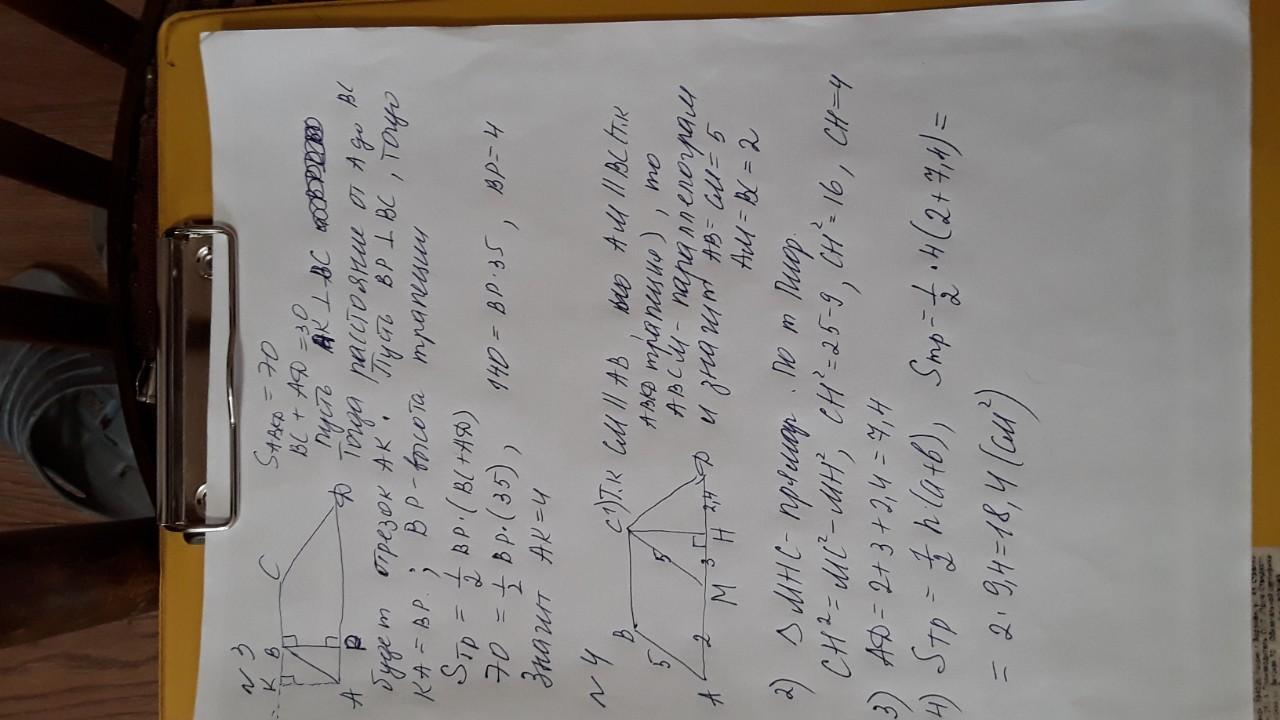 N 3
K B C
A P D
S ABCD = 70
BC + AD = 30
Пусть AK ⊥ BC
Тогда расстояние от A до BC
будет отрезок AK. Пусть BP ⊥ BC, тогда
KA = BP; BP - высота трапеции
Sтр = 1/2 BP·(BC+AD)
70 = 1/2 BP·(35), 140 = BP·35, BP = 4
Значит AK = 4
N 4
B C
5 5
A 2 M 3 H 2,4 D
1) Т.к CM || AB AM || BC (т.к
трапция), то
ABCM - параллелограм
и значит AB = CM = 5
AM = BC = 2
2) Δ MHC - прямоуг. По т Пиф.
CH² = MC² - MH², CH² = 25 - 9, CH² = 16, CH = 4
3) AD = 2 + 3 + 2,4 = 7,4
4) Sтр = 1/2 h(a+b), Sтр = 1/2 · 4(2 + 7,4) =
= 2 · 9,4 = 18,4 (см²)